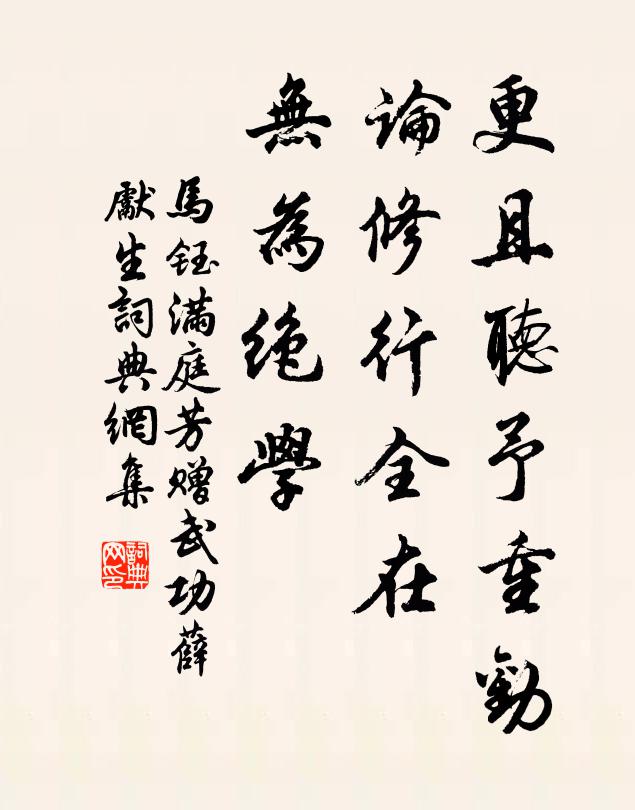 更且聽予重勸
論修行全在
無為絶學
馬鈺滿庭芳贈武功薛
獻生詞典網集
詞典网印